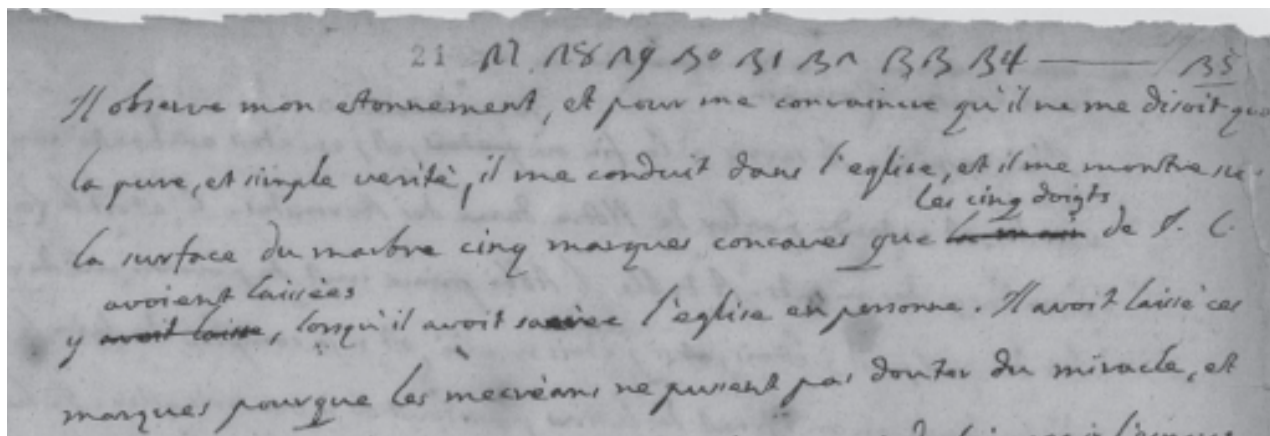 21 27 28 29 30 31 32 33 34 — 35
Il observe mon etonnement, et pour me convaincre qu'il ne me disoit que
la pure, et simple verité, il me conduit dans l'eglise, et il me montre su
les cinq doigts
la surface du marbre cinq marques concaves que la main de J. C.
avoient laissées
y avoit laissé, lorsqu'il avoit sacrée l'eglise en personne. Il avoit laissé ces
marques pourque les mecréans ne pussent pas douter du miracle, et